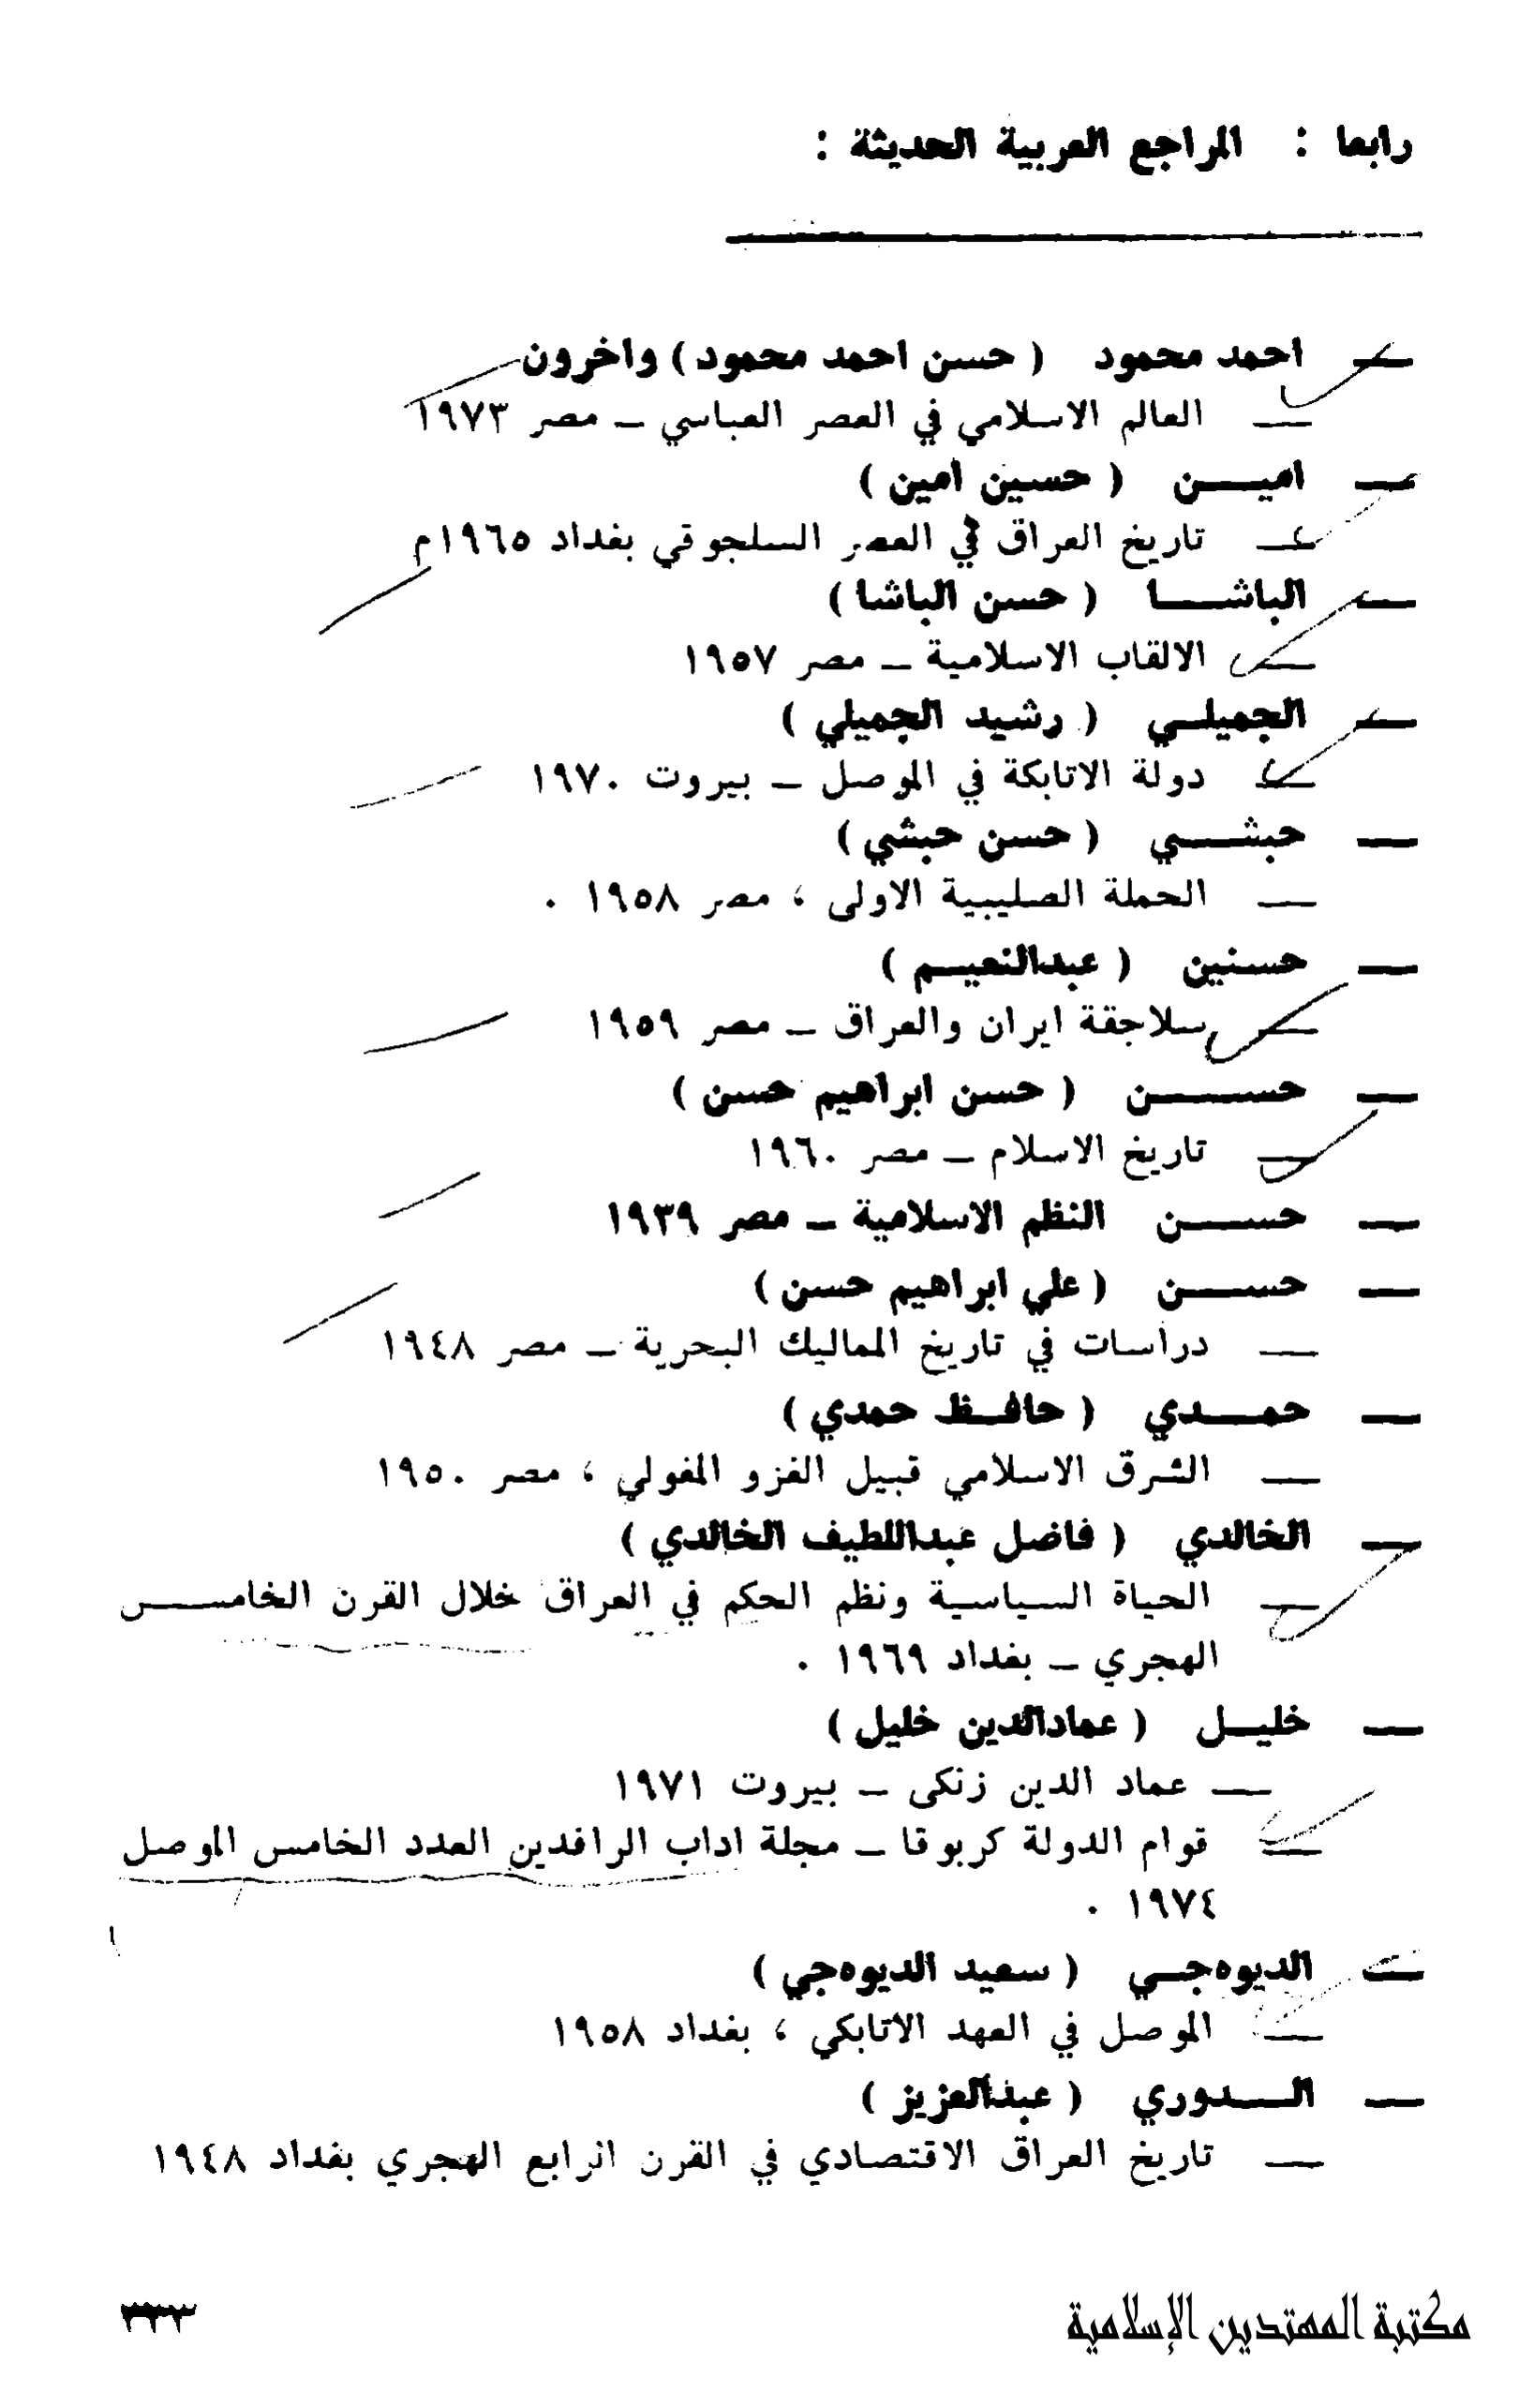 رابعا : المراجع العربية الحديثة :
— احمد محمود ( حسن احمد محمود ) واخرون
— العالم الاسلامي في العصر العباسي – مصر ١٩٧٣
— اميـــن ( حسين امين )
— تاريخ العراق في العصر السلجوقي بغداد ١٩٦٥م
— الباشـــا ( حسن الباشا )
— الالقاب الاسلامية – مصر ١٩٥٧
— الجميلـي ( رشيد الجميلي )
— دولة الاتابكة في الموصل – بيروت ١٩٧٠
— حبشـــي ( حسن حبشي )
— الحملة الصليبية الاولى ، مصر ١٩٥٨ .
— حسنين ( عبدالنعيـم )
— سلاجقة ايران والعراق – مصر ١٩٥٩
— حســـــن ( حسن ابراهيم حسن )
— تاريخ الاسلام – مصر ١٩٦٠
— حســـن النظم الاسلامية – مصر ١٩٣٩
— حســـن ( علي ابراهيم حسن )
— دراسات في تاريخ المماليك البحرية – مصر ١٩٤٨
— حمـــدي ( حافـظ حمدي )
— الشرق الاسلامي قبيل الغزو المغولي ، مصر ١٩٥٠
— الخالدي ( فاضل عبداللطيف الخالدي )
— الحياة السياسية ونظم الحكم في العراق خلال القرن الخامـــس
الهجري – بغداد ١٩٦٩ .
— خليـل ( عمادالدين خليل )
— عماد الدين زنكى – بيروت ١٩٧١
— قوام الدولة كربوقا – مجلة اداب الرافدين العدد الخامس الموصل
١٩٧٤ .
— الديوه‌جـي ( سعيد الديوه‌جي )
— الموصل في العهد الاتابكي ، بغداد ١٩٥٨
— الـــدوري ( عبدالعزيز )
— تاريخ العراق الاقتصادي في القرن الرابع الهجري بغداد ١٩٤٨
٣٣٣
مكتبة المهتدين الإسلامية